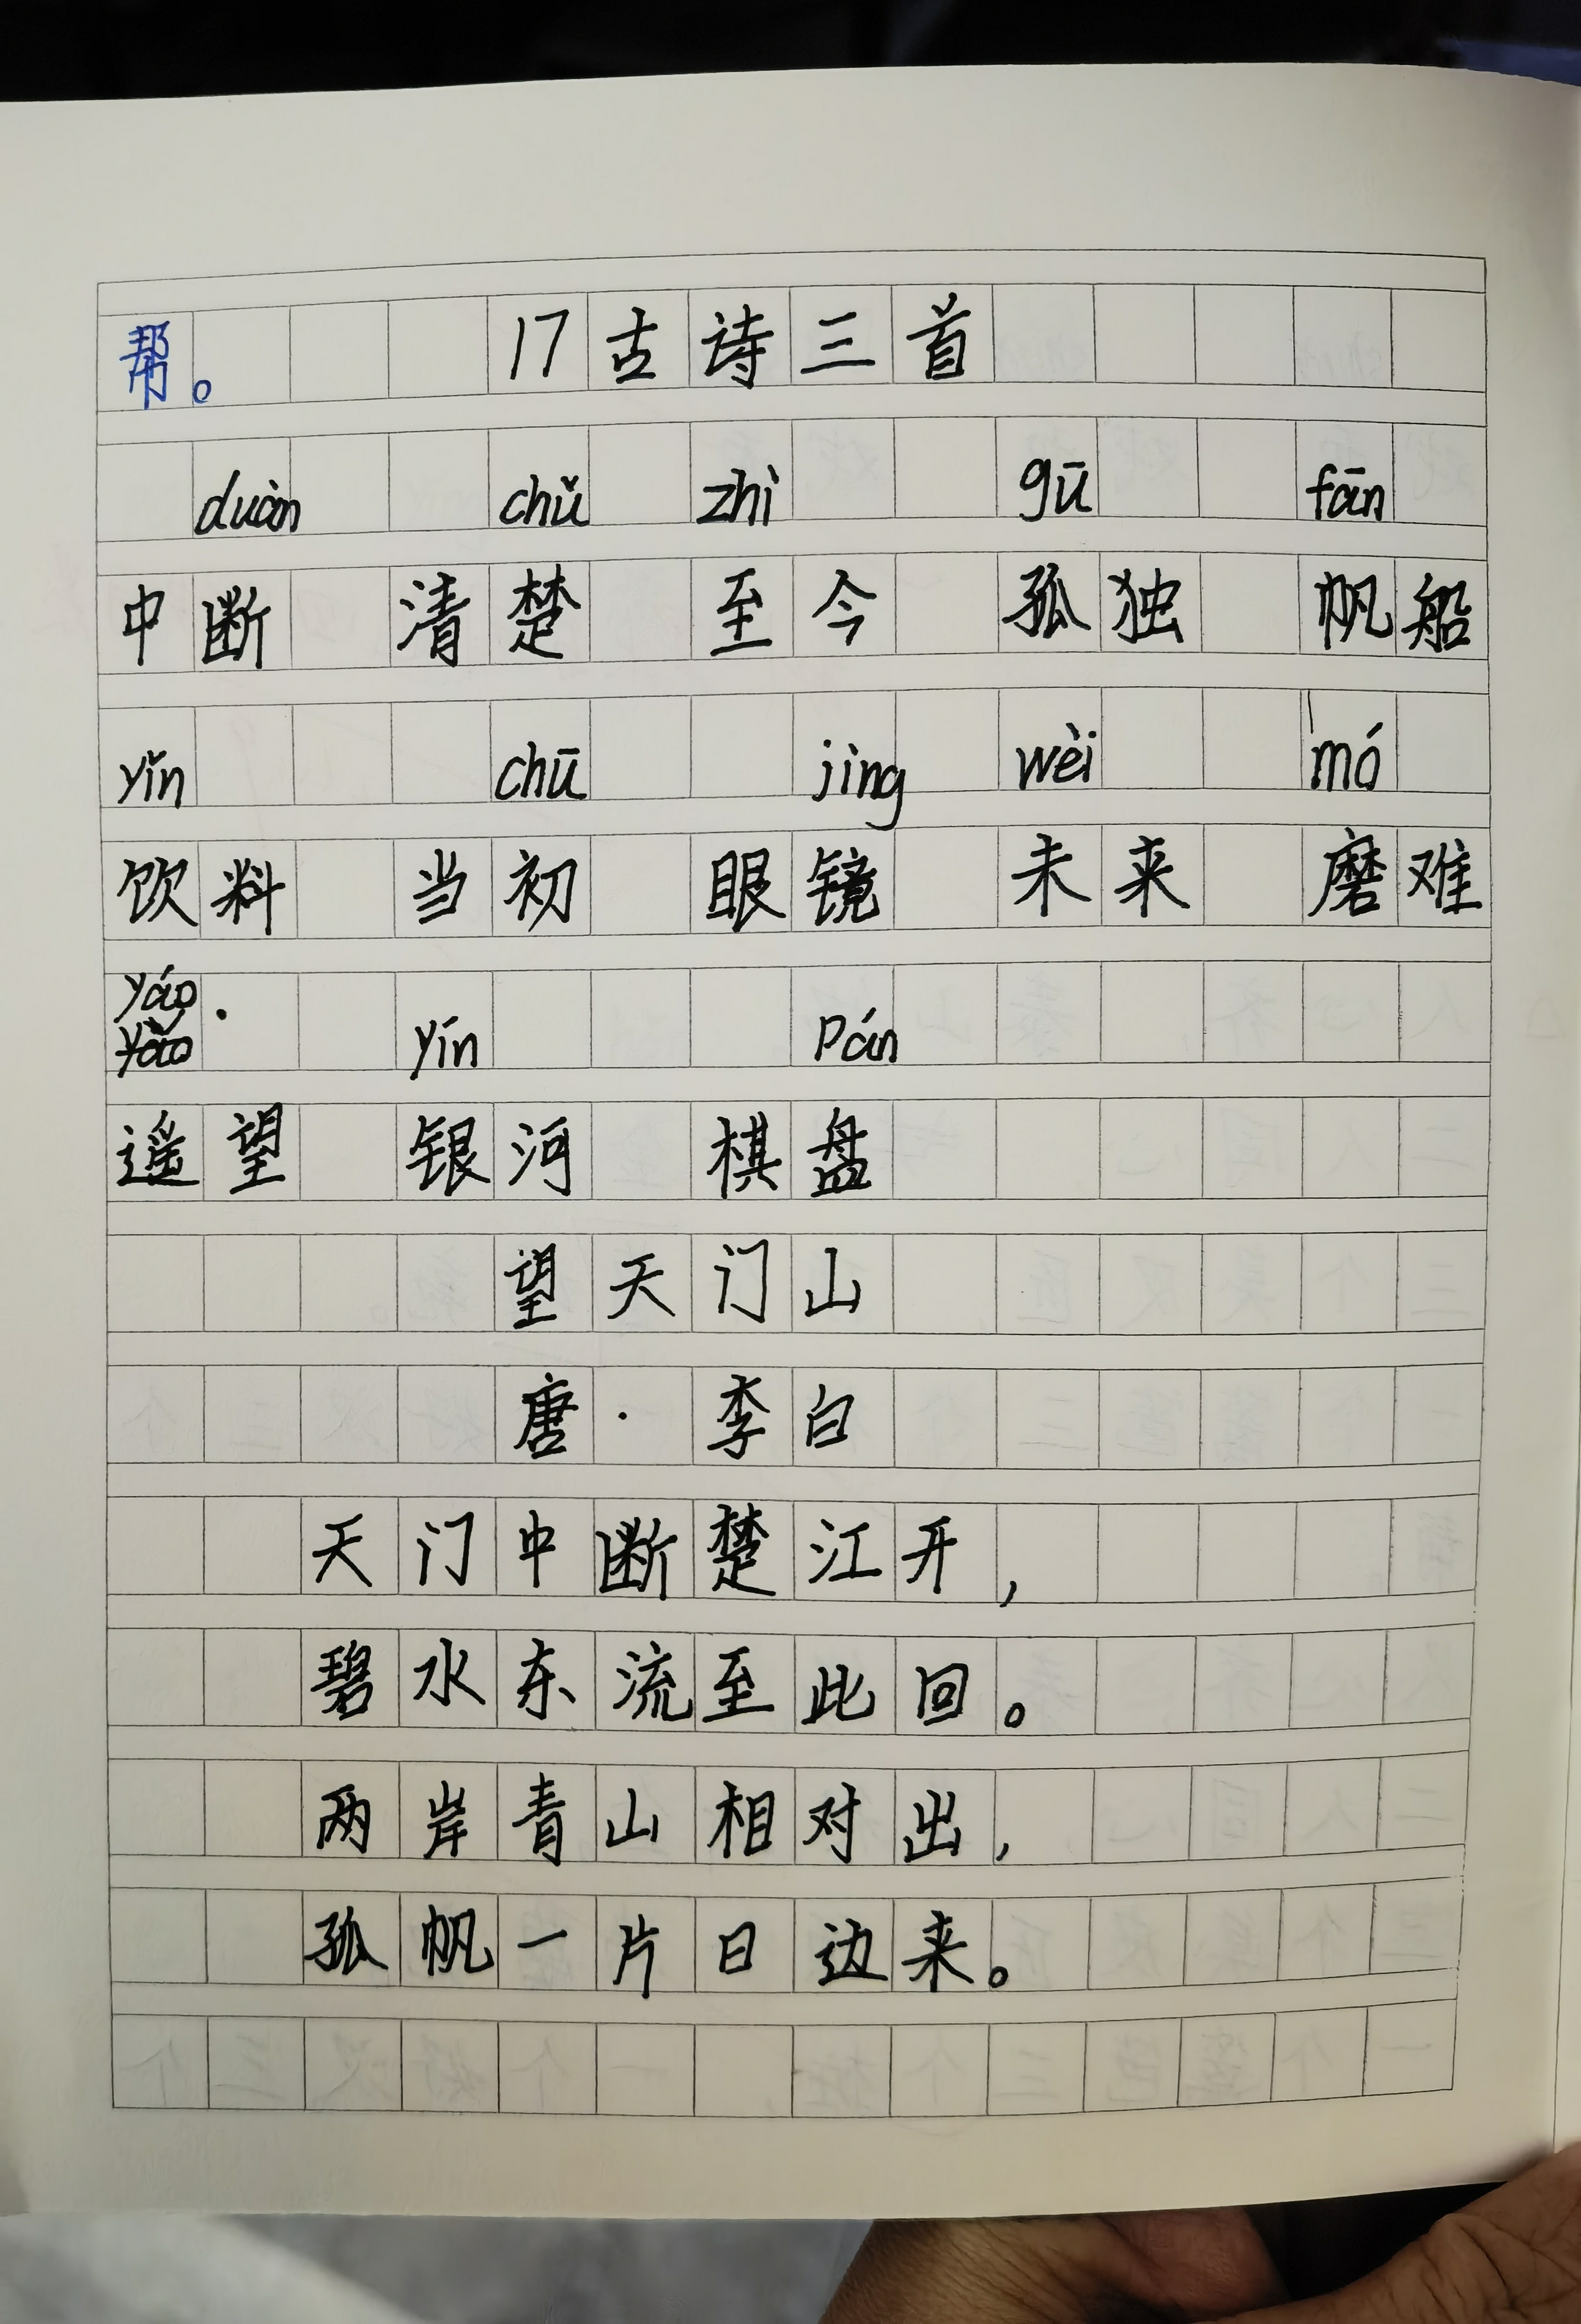 帮。 17古诗三首
duàn chǔ zhì gū fān
中断 清楚 至今 孤独 帆船
yǐn chū jìng wèi mó
饮料 当初 眼镜 未来 磨难
yáo
yín pán
遥望 银河 棋盘
望天门山
唐·李白
天门中断楚江开，
碧水东流至此回。
两岸青山相对出，
孤帆一片日边来。